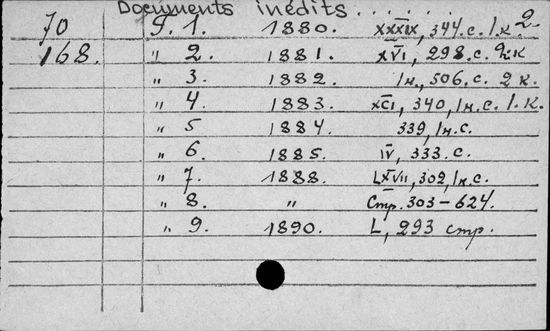 Documents inédits . . . . . . 2.
70 S. 1. 1880. XXXIX, 344.с. 1.к.
168. " 2. 1881. XVI, 298.с. 2к
" 3. 1882. 1н., 506.с. 2 к.
" 4. 1883. XCI, 340, 1н.с. 1.к.
" 5 1884. 339, 1н.с.
" 6. 1885. IV, 333.с.
" 7. 1888. LXVII, 302, 1н.с.
" 8. " Стр. 303-624.
" 9. 1890. L, 293 стр.